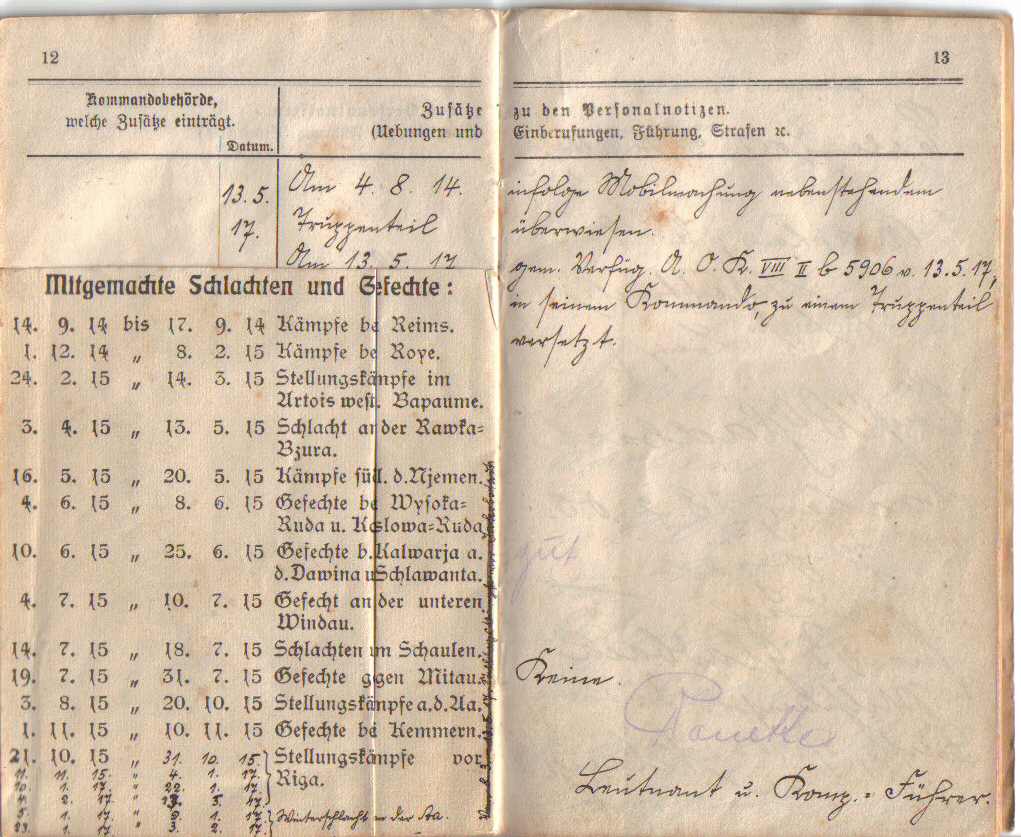 12
Kommandobehörde,
welche Zusätze einträgt.
Datum.
Zusätze
(Uebungen und
13.5.
17.
Am 4. 8. 14.
Truppenteil
Am 13. 5. 17
Mitgemachte Schlachten und Gefechte:
14. 9. 14 bis 17. 9. 14 Kämpfe be Reims.
1. 12. 14 „ 8. 2. 15 Kämpfe be Roye.
24. 2. 15 „ 14. 3. 15 Stellungskämpfe im
Artois west. Bapaume.
3. 4. 15 „ 13. 5. 15 Schlacht an der Rawka-
Bzura.
16. 5. 15 „ 20. 5. 15 Kämpfe südl. d. Njemen.
4. 6. 15 „ 8. 6. 15 Gefechte be Wysoka-
Ruda u. Koslowa-Ruda
10. 6. 15 „ 25. 6. 15 Gefechte b. Kalwarja a.
d. Dawina u Schlawanta.
4. 7. 15 „ 10. 7. 15 Gefecht an der unteren
Windau.
14. 7. 15 „ 18. 7. 15 Schlachten um Schaulen.
19. 7. 15 „ 31. 7. 15 Gefechte gegen Mitau.
3. 8. 15 „ 20. 10. 15 Stellungskämpfe a. d. Aa.
1. 11. 15 „ 10. 11. 15 Gefechte be Kemmern.
21. 10. 15 „ 31. 10. 15. Stellungskämpfe vor
11. 11. 15. " 4. 1. 17. Riga.
10. 1. 17. " 22. 1. 17.
4. 2. 17. "
5. 1. 17. " 9. 1. 17. Winterschlacht an der Aa.
23. 1. 17. " 3. 2. 17.
13
zu den Personalnotizen.
Einberufungen, Führung, Strafen ꝛc.
infolge Mobilmachung nebenstehendem
überwiesen.
gem. Verfüg. A. O. K. VIII II b 5906 v. 13.5.17,
in seinem Kommando, zu einem Truppenteil
versetzt.
gut
Keine.
Leutnant u. Komp.-Führer.